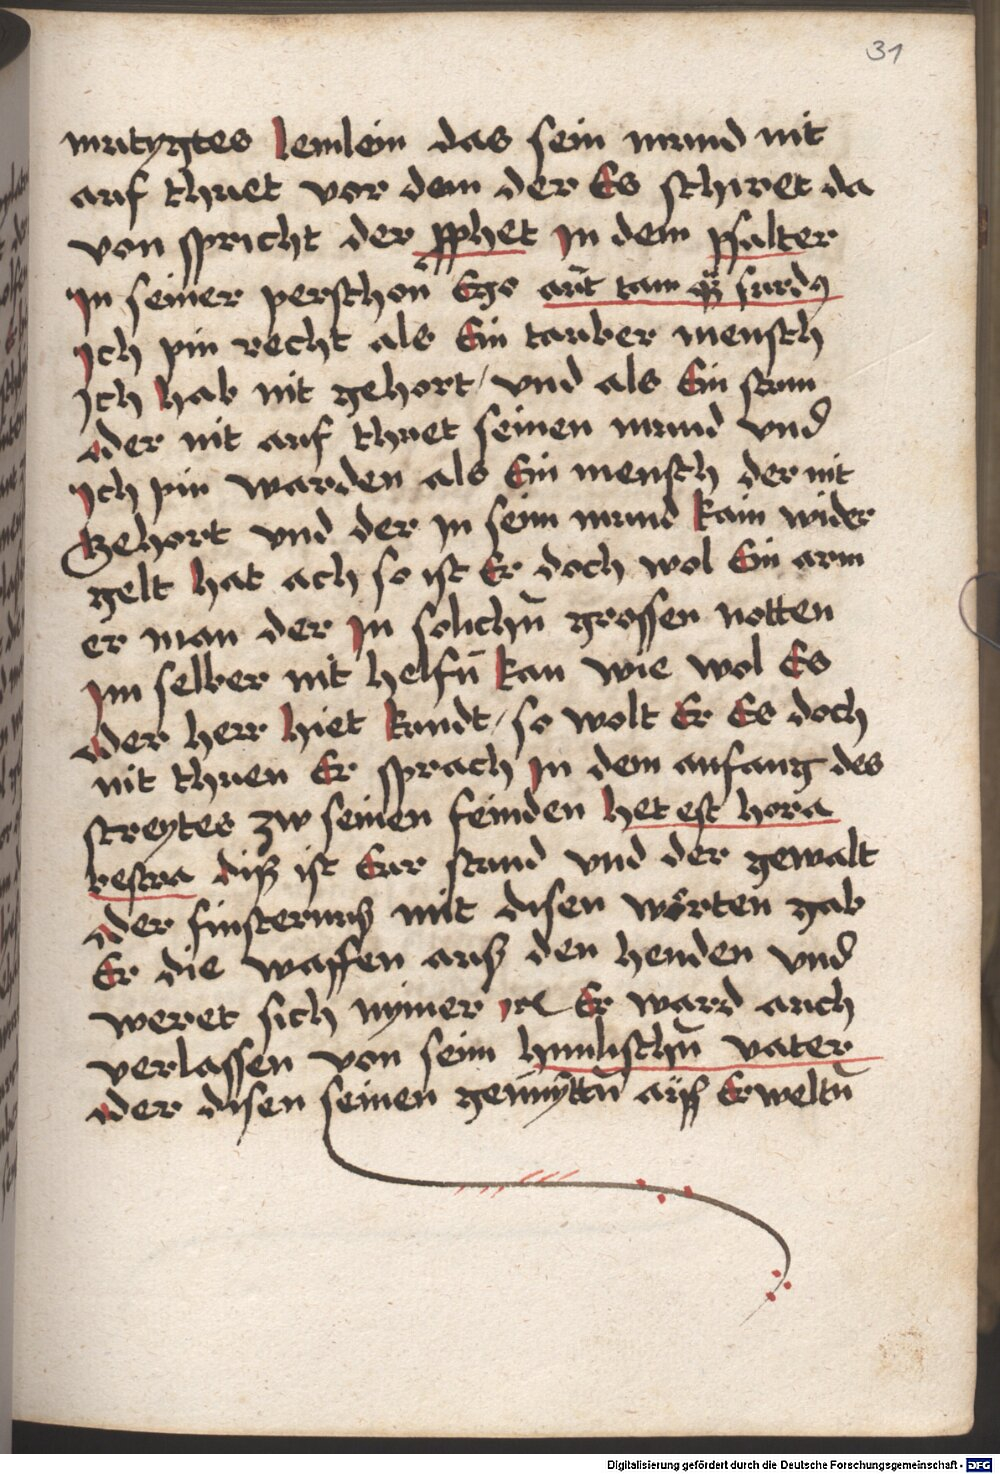 31
mutygtes lemlein das sein mund nit
auf thuet vor dem der Es schiret da
von spricht der pphet In dem psalter
In seiner perschon Ego aūt tam qz surdꝯ
Ich pin recht als Ein tauber mensch
Ich hab nit gehort / und als Ein stum
der nit auf thuet seinen mund und
Ich pin warden als Ein mensch der nit
gehort und der In seim mund kain wider
gelt hat ach so ist Er doch wol Ein arm
er man der In solichn̄ grossen notten
Im selber nit helfn̄ kan wie wol Es
der herr hiet kundt / so wolt Er Es doch
nit thuen Er sprach In dem anfang des
streytes zw seinen feinden het est hora
vestra diß ist Eur stund und der gewalt
der finsternuß mit disen wörten gab
Er die waffen auß den henden und
weret sich nymer Er ward auch
verlassen von seim himlischn̄ vater
der disen seinen gemÿttn̄ aÿß Erweltn̄
Digitalisierung gefördert durch die Deutsche Forschungsgemeinschaft - DFG